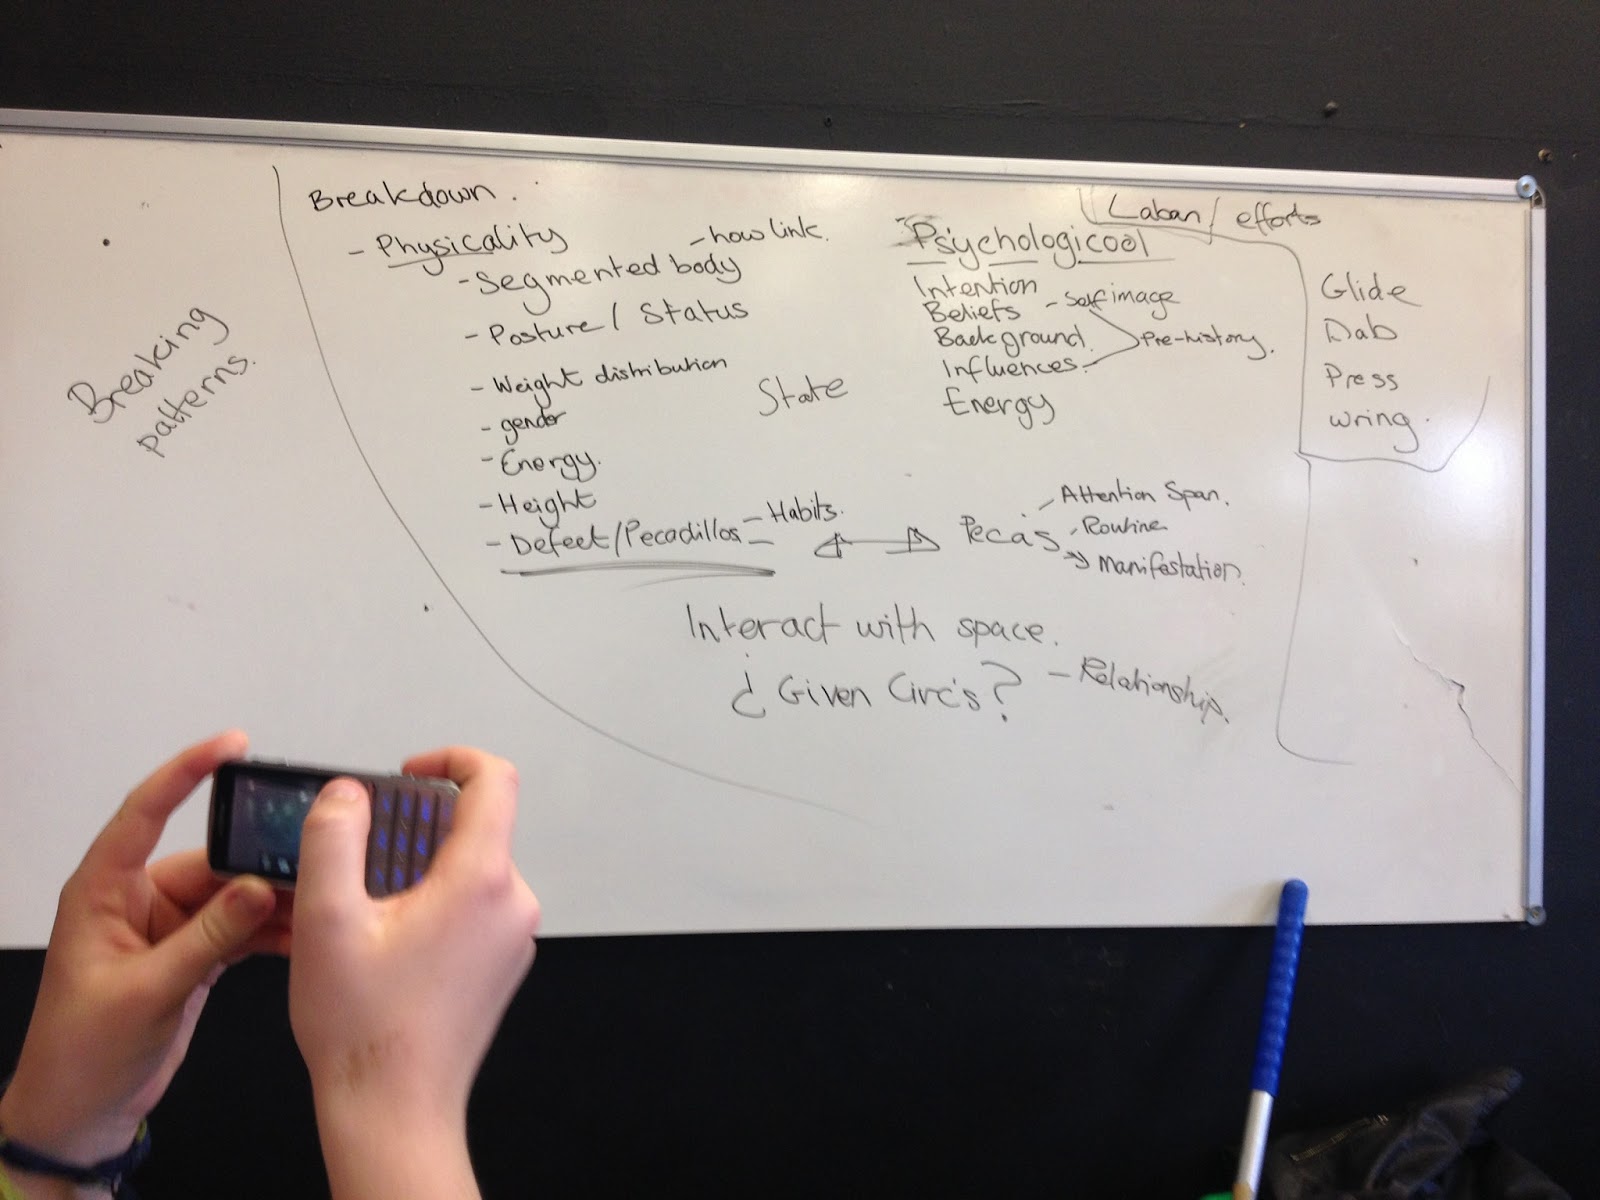 Breaking
patterns.
Breakdown.
- Physicality
- how link.
- Segmented body
- Posture / Status
- Weight distribution
- gender
- Energy.
- Height
- Defect/Pecadillos
- Habits.
State
Psychologicool
Intention
Beliefs - Self image
Background.
Influences.
Pre-history.
Energy
Pecas
Attention Span.
Routine
Manifestation.
Interact with space.
¿ Given Circ's?
- Relationship.
Laban / efforts
Glide
Dab
Press
wring.